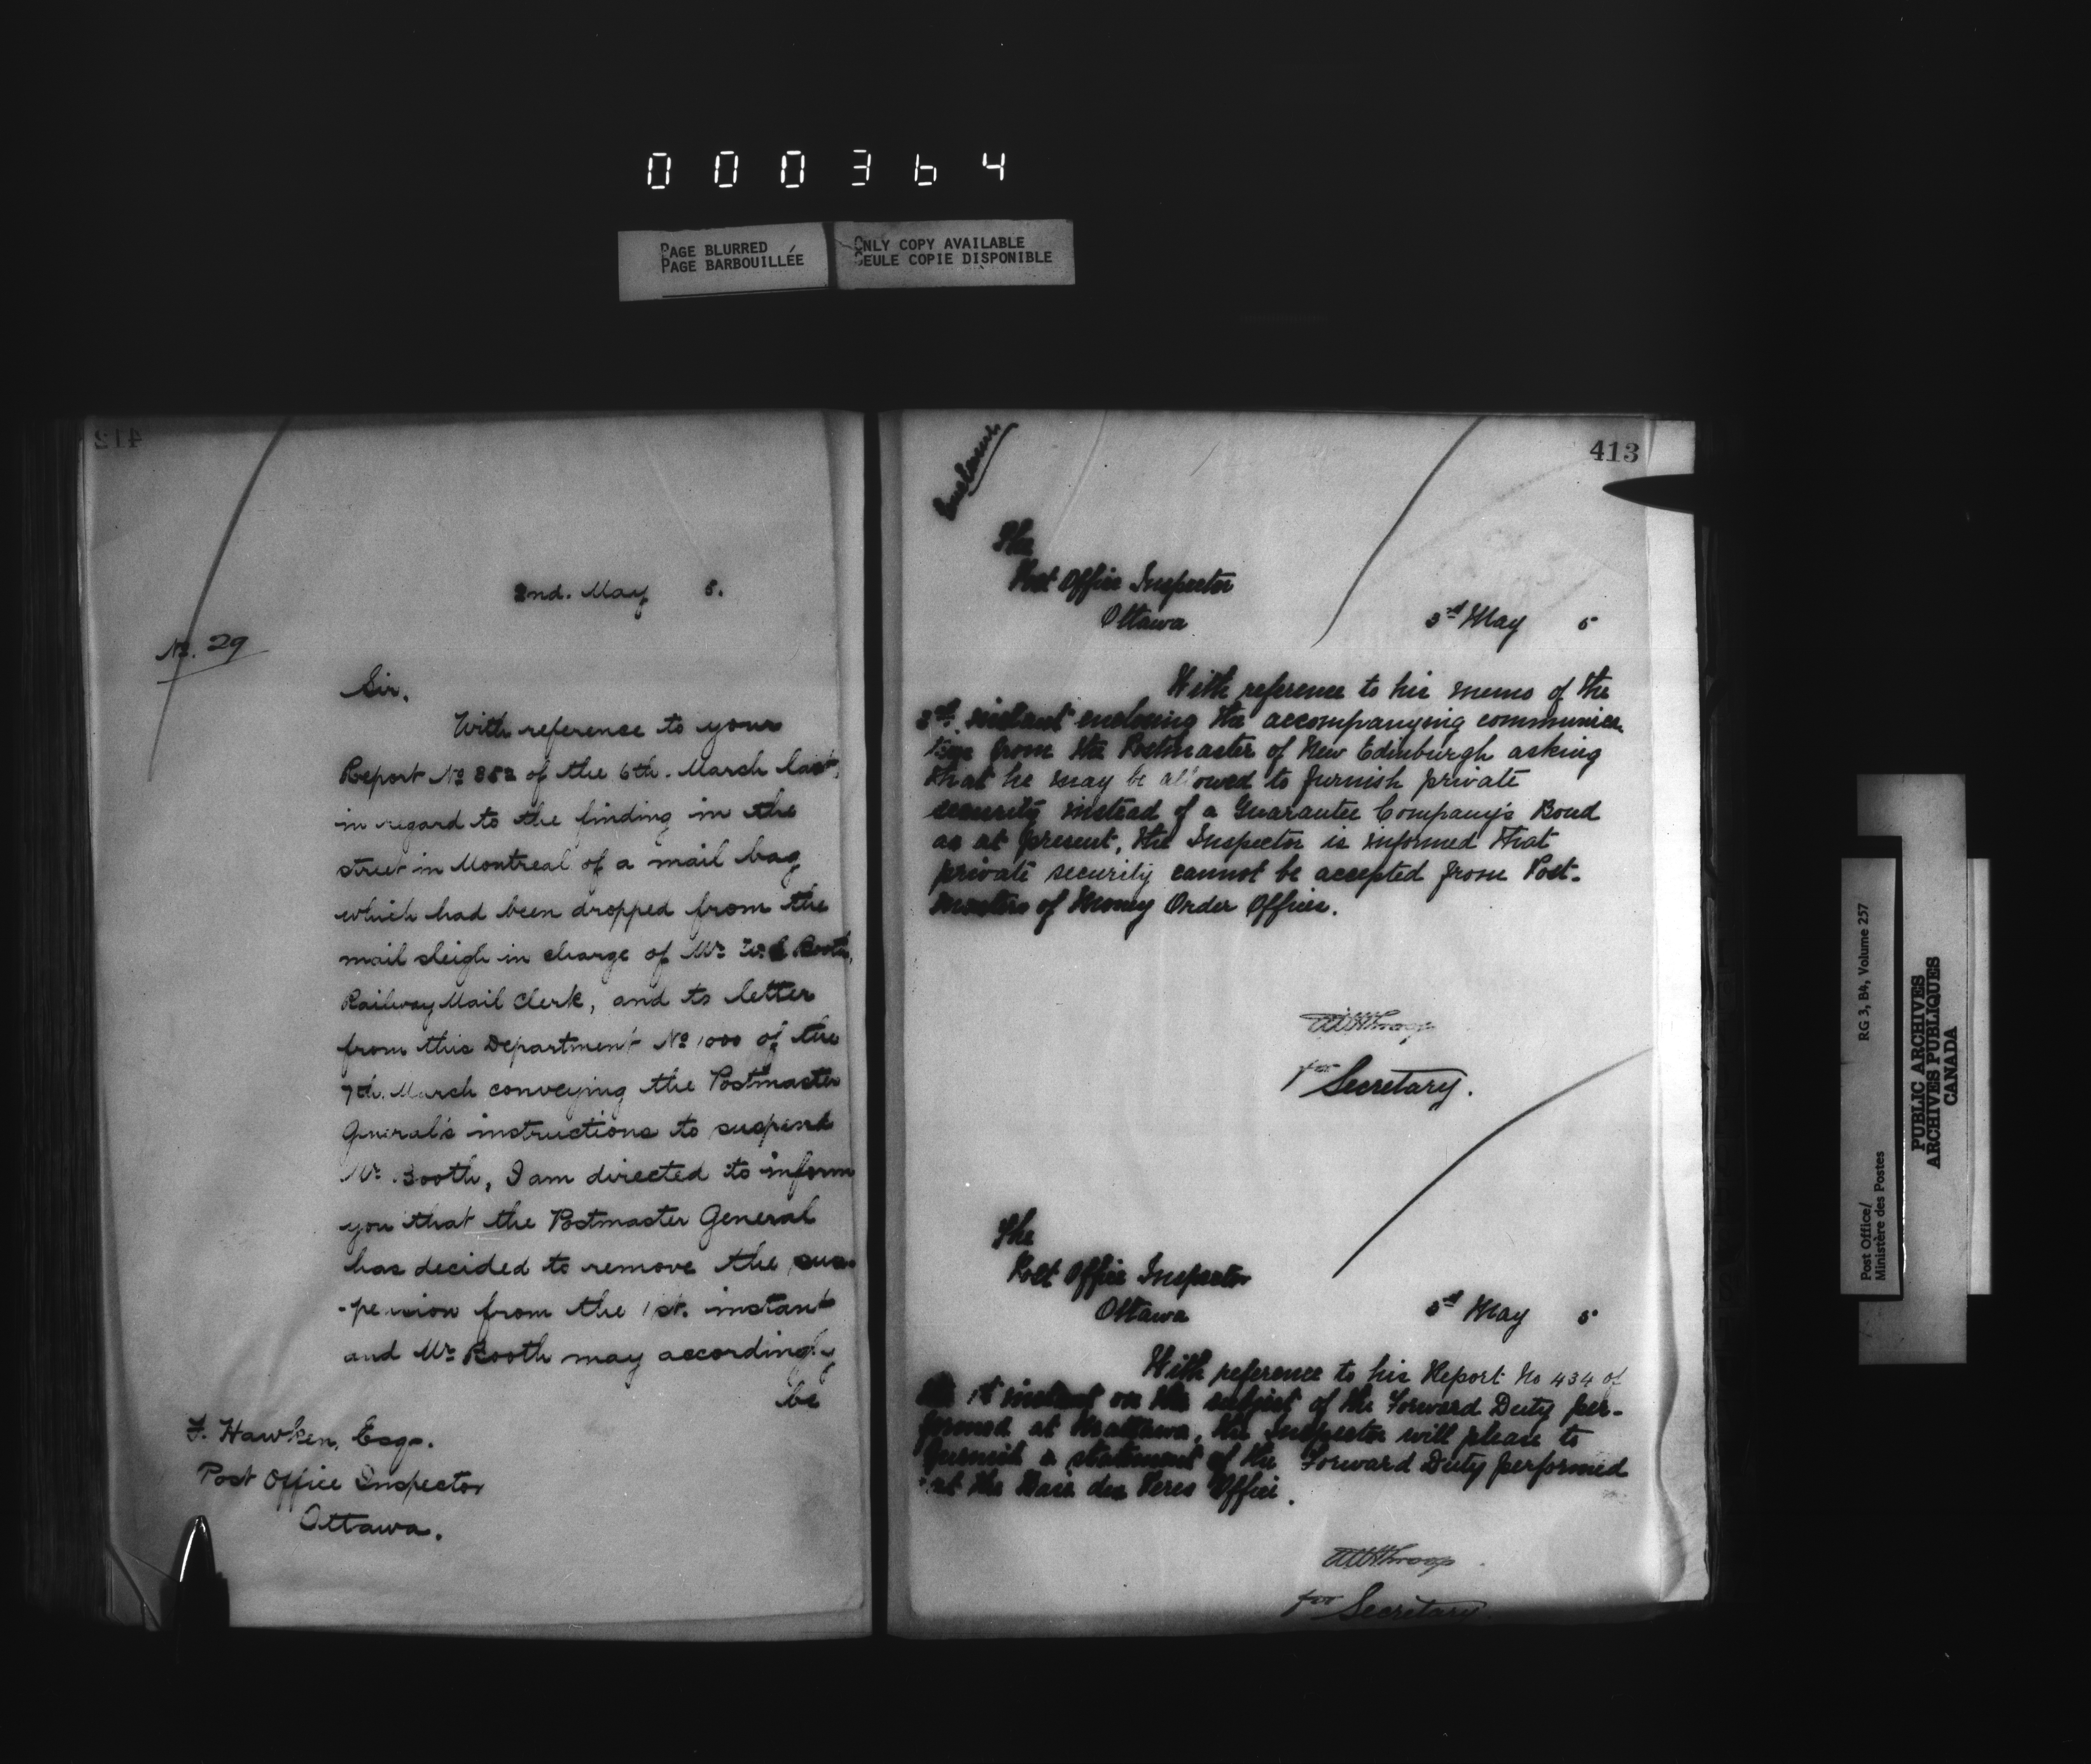 000364
PAGE BLURRED
PAGE BARBOUILLÉE
ONLY COPY AVAILABLE
SEULE COPIE DISPONIBLE
412
2nd. May 5.
No. 29
Sir,
With reference to your
Report No 852 of the 6th. March last,
in regard to the finding in the
street in Montreal of a mail bag
which had been dropped from the
mail sleigh in charge of Mr. Booth,
Railway Mail Clerk, and to letter
from this Department No 1000 of the
7th. March conveying the Postmaster
General's instructions to suspend
Mr. Booth, I am directed to inform
you that the Postmaster General
has decided to remove the sus-
-pension from the 1st. instant
and Mr. Booth may accordingly
be
F. Hawken, Esqr.
Post Office Inspector
Ottawa.
413
The
Post Office Inspector
Ottawa
3rd May 5
With reference to his memo of the
instant enclosing the accompanying communica-
tion from the Postmaster of New Edinburgh asking
that he may be allowed to furnish private
security instead of a Guarantee Company's Bond
as at present, the Inspector is informed that
private security cannot be accepted from Post-
masters of Money Order Offices.
for Secretary.
The
Post Office Inspector
Ottawa
3rd May 5
With reference to his Report No 434 of
the 1st instant on the subject of the Forward Duty per-
formed at Mattawa, the Inspector will please to
furnish a statement of the Forward Duty performed
at the des Peres Office.
for Secretary.
Post Office/
Ministère des Postes
RG 3, B4, Volume 257
PUBLIC ARCHIVES
ARCHIVES PUBLIQUES
CANADA